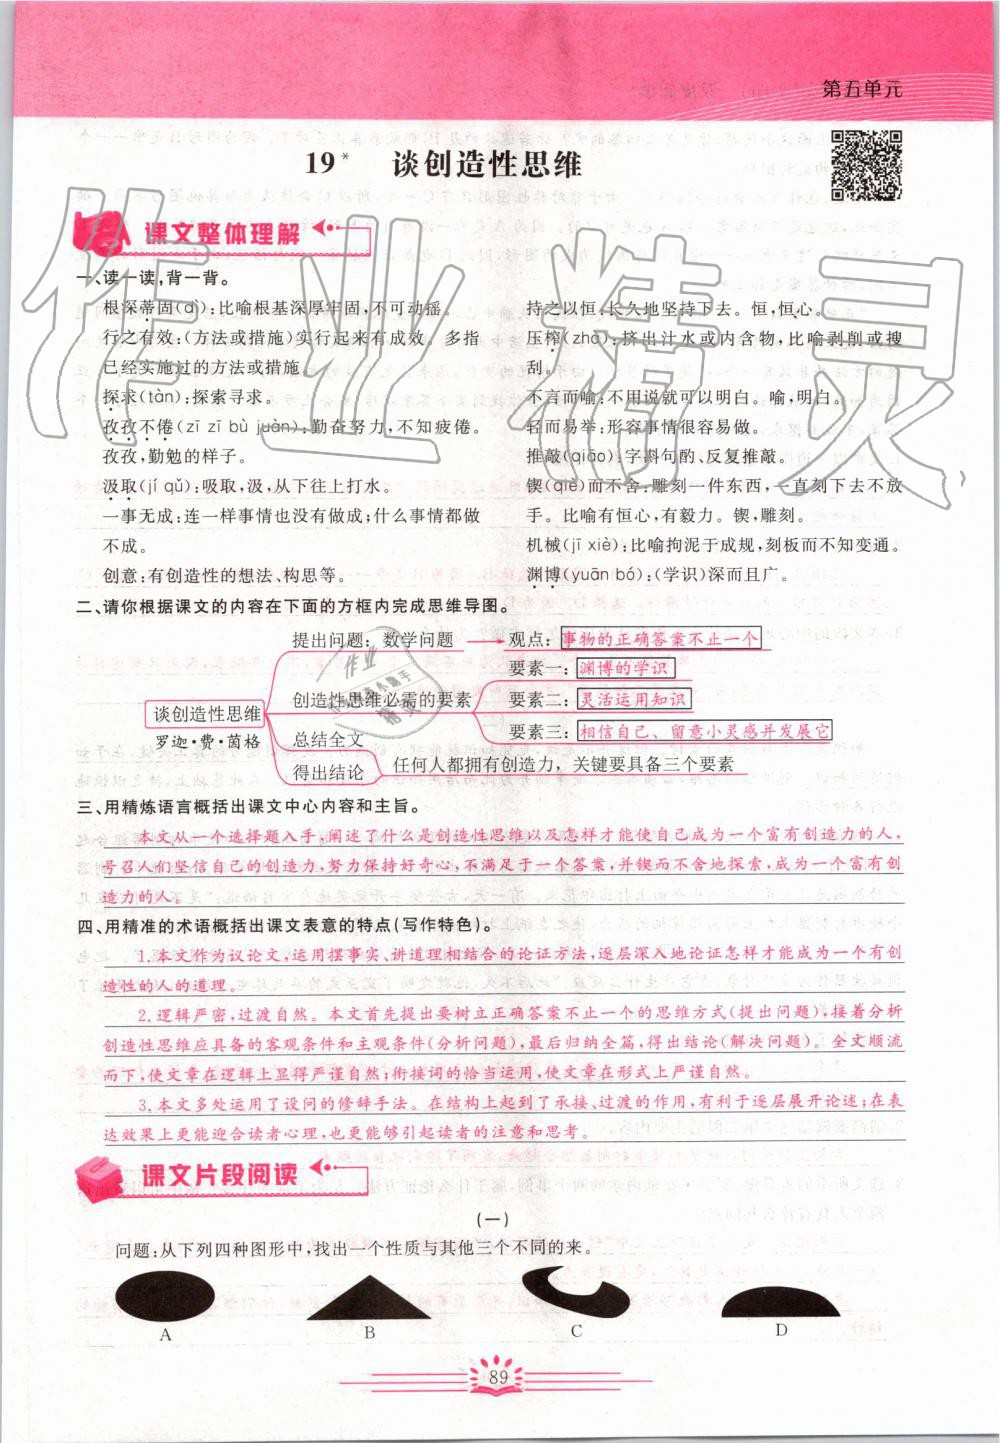 第五单元
19* 谈创造性思维
课文整体理解
一、读一读,背一背。
根深蒂固(dì):比喻根基深厚牢固,不可动摇。
行之有效:(方法或措施)实行起来有成效。多指
已经实施过的方法或措施。
探求(tàn):探索寻求。
孜孜不倦(zī zī bù juàn):勤奋努力,不知疲倦。
孜孜,勤勉的样子。
汲取(jí qǔ):吸取,汲,从下往上打水。
一事无成:连一样事情也没有做成;什么事情都做
不成。
创意:有创造性的想法、构思等。
持之以恒:长久地坚持下去。恒,恒心。
压榨(zhà):挤出汁水或内含物,比喻剥削或搜
刮。
不言而喻:不用说就可以明白。喻,明白。
轻而易举:形容事情很容易做。
推敲(qiāo):字斟句酌、反复推敲。
锲(qiè)而不舍:雕刻一件东西,一直刻下去不放
手。比喻有恒心,有毅力。锲,雕刻。
机械(jī xiè):比喻拘泥于成规,刻板而不知变通。
渊博(yuān bó):(学识)深而且广。
二、请你根据课文的内容在下面的方框内完成思维导图。
谈创造性思维
罗迦·费·茵格
提出问题:数学问题
观点:事物的正确答案不止一个
创造性思维必需的要素
要素一:渊博的学识
要素二:灵活运用知识
要素三:相信自己、留意小灵感并发展它
总结全文
得出结论
任何人都拥有创造力,关键要具备三个要素
三、用精炼语言概括出课文中心内容和主旨。
本文从一个选择题入手,阐述了什么是创造性思维以及怎样才能使自己成为一个富有创造力的人,
号召人们坚信自己的创造力,努力保持好奇心,不满足于一个答案,并锲而不舍地探索,成为一个富有创
造力的人。
四、用精准的术语概括出课文表意的特点(写作特色)。
1.本文作为议论文,运用摆事实、讲道理相结合的论证方法,逐层深入地论证怎样才能成为一个有创
造性的人的道理。
2.逻辑严密,过渡自然。本文首先提出要树立正确答案不止一个的思维方式(提出问题),接着分析
创造性思维应具备的客观条件和主观条件(分析问题),最后归纳全篇,得出结论(解决问题)。全文顺流
而下,使文章在逻辑上显得严谨自然;衔接词的恰当运用,使文章在形式上严谨自然。
3.本文多处运用了设问的修辞手法。在结构上起到了承接、过渡的作用,有利于逐层展开论述;在表
达效果上更能迎合读者心理,也更能够引起读者的注意和思考。
课文片段阅读
(一)
问题:从下列四种图形中,找出一个性质与其他三个不同的来。
A B C D
89